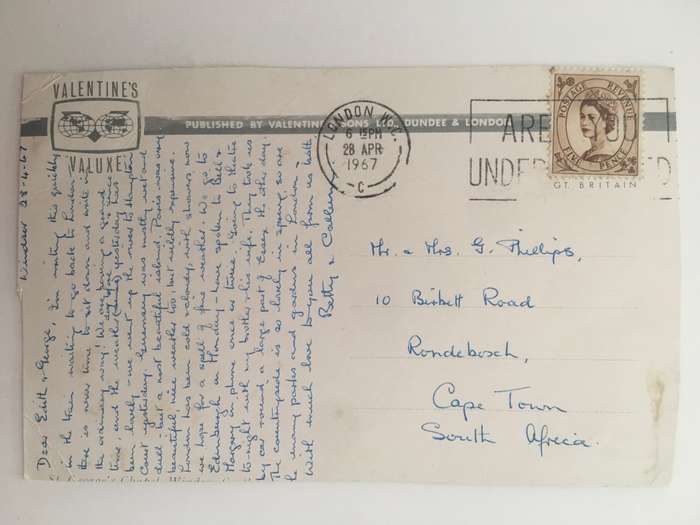 VALENTINE'S
VALUXE
PUBLISHED BY VALENTINE SONS LTD. DUNDEE & LONDON
LONDON W.C.
6 15PM
28 APR
1967
-C-
ARE YOU
UNDER
POSTAGE REVENUE
FIVE PENCE
GT. BRITAIN
Windsor 28-4-67
Dear Edith & George, I'm writing this quickly
in the train waiting to go back to London -
there is never time to sit down and write in
the ordinary way! We are having a good
time, and the weather yesterday has
been lovely - we went up the river to Hampton
Court yesterday. Germany was mostly wet and
dull - but a most beautiful island. Paris was very
beautiful, nice weather too, but wildly expensive.
London has been cold & cloudy, with showers now
we hope for a spell of fine weather. We go to
Edinburgh on Monday - have spoken to Bill &
Margory on phone once or twice. Going to theatre
to-night with my brother & his wife. They took us
by car round a large part of Essex the other day.
The countryside is so lovely in spring, so are
the many parks and gardens in London.
With much love to you all from us both
Betty & Callum
Mr. & Mrs. G. Phillips,
10 Birkett Road
Rondebosch,
Cape Town
South Africa.
St. George's Chapel, Windsor